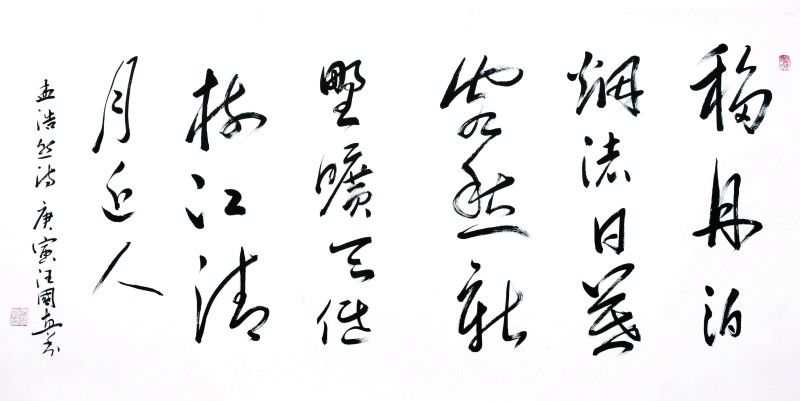 移舟泊
烟渚日暮
客愁新
野旷天低
树江清
月近人
孟浩然诗 庚寅汪国真书